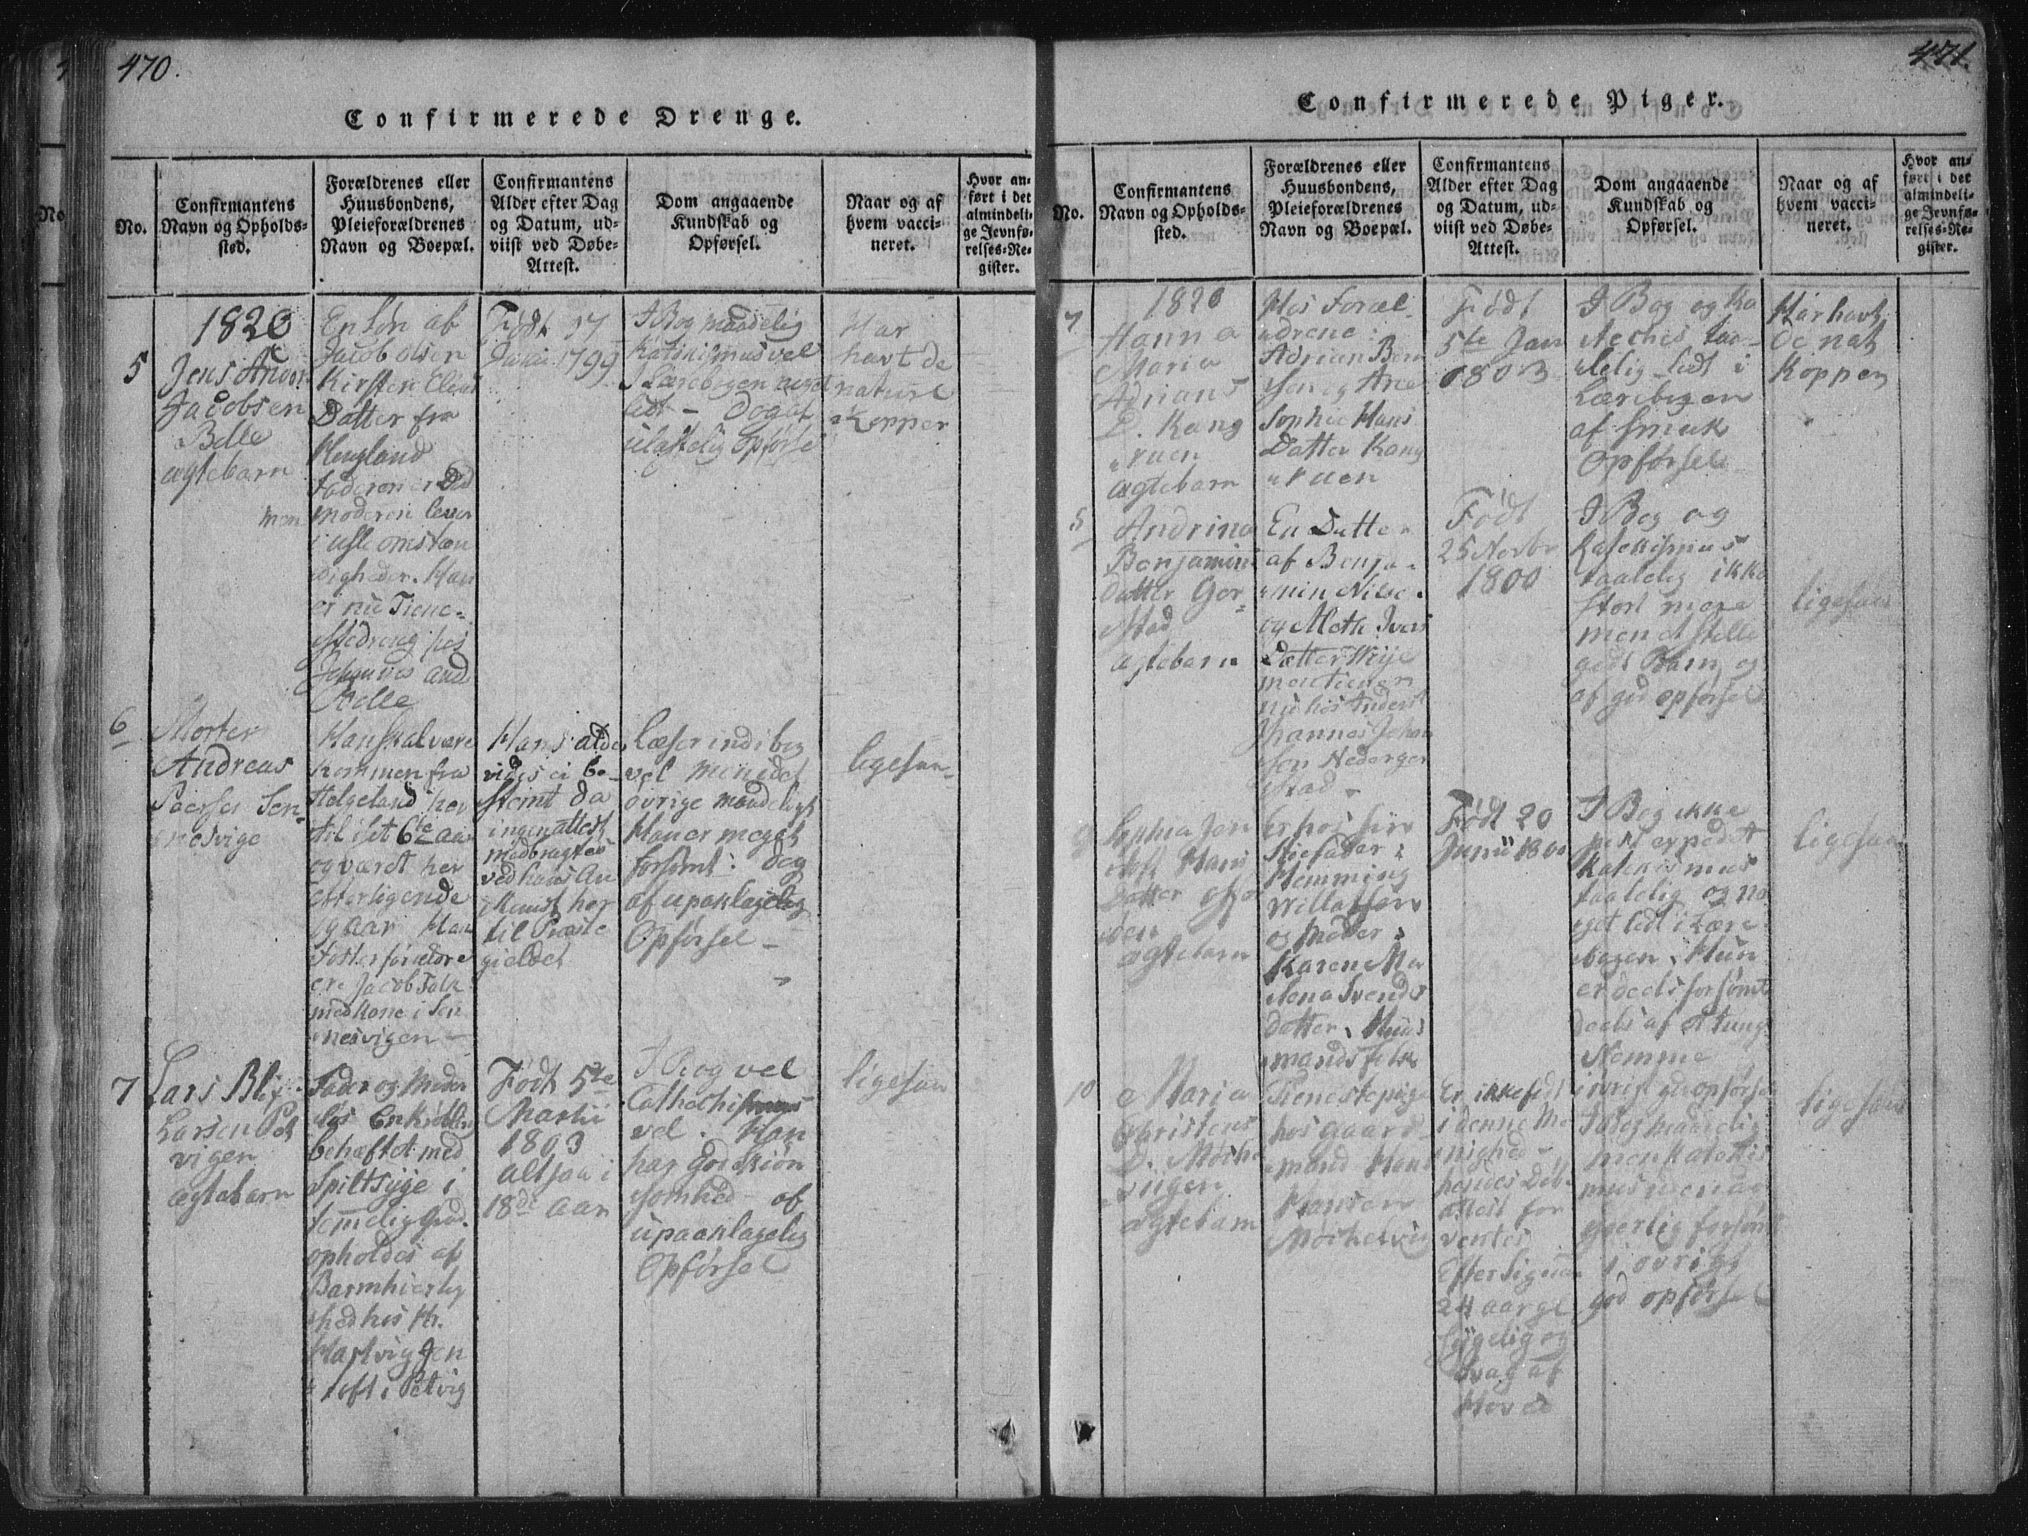 470.
Confirmerede Drenge.
No.
Confirmantens
Navn og Opholds-
sted.
Forældrenes eller
Huusbondens,
Pleieforældrenes
Navn og Boepæl.
Confirmantens
Alder efter Dag
og Datum, ud-
viist ved Døbe-
Attest.
Dom angaaende
Kundskab og
Opførsel.
Naar og af
hvem vacci-
neret.
Hvor an-
ført i det
almindeli-
ge Jevnfø-
relses-Re-
gister.
1820
5
Jens Andor
Jacobsen
Belle
ægtebarn
En Søn af
Jacob Olsen
Kirsten Elias
Datter fra
Faderen er Død
men
moderen lever
i usle omstæn
digheder. Han
er nu Tiene-
stedreng hos
Johannes And
Født 17
1799
I Bog maadelig
Katekismus vel
I Lærebogen noget
lidt – Dog af
ulastelig Opførsel
Har
havt de
naturl
Kopper
6
Morten
Andreas
nesvige
Han skal være
kommen fra
Helgeland her
til i sit 6te Aar
og været her
efterligende
9 aar Han
Fosterforældre
er Jacob Falk
med Kone i Sen
nesvigen –
Hans alder
vides ei be-
stemt da
ingen attest
medbragtes
ved hans An
komst her
til Præste
gieldet
Læser ind i bog
vel men i det
øvrige maadeligt
Han er meget
forsømt: dog
af upaaklagelig
Opførsel –
ligesaa
7
Lars Blix
Larsen Pet
vigen
ægtebarn
Fader og Moder
løs
behæftet med
Spiltsyge i
temmelig Grad.
opholdes af
Barmhiertig
hed hos Hr.
Hartvig Jen
toft i Petvig
Født 5te
Martii
1803
altsaa i
18de Aar
I Bog vel
Cathechismus
vel. Han
har god Skiøn
somhed – af
upaaklagelig
Opførsel
ligesaa
471.
Confirmerede Piger.
No.
Confirmantens
Navn og Opholds-
sted.
Forældrenes eller
Huusbondens,
Pleieforældrenes
Navn og Boepæl.
Confirmantens
Alder efter Dag
og Datum, ud-
viist ved Døbe-
Attest.
Dom angaaende
Kundskab og
Opførsel.
Naar og af
hvem vacci-
neret.
Hvor an-
ført i det
almindeli-
ge Jevnfø-
relses-Re-
gister.
1820
7
Hanna
Maria
Adrians
D. Kang
ruen
ægtebarn
Hos Foræl-
drene:
Adrian Ben
Sophie Hans
Datter Kang
ruen
Født
5te Jan
1803
I Bog og Ka
techis taa-
lelig lidt i
Lærebogen
af smuk
Opførsel
Har havt
de nat
Kopper
Andrina
Benjamins
datter Ger-
stad
ægtebarn
En Datter
af Benja-
min Nilse.
og Meth Ivers
Datter
men tiener
nu hos Anders
Johannes Johan
sen Nedergier
stad –
Født
25 Novbr
1800
I Bog og
Katekismus
taalelig ikke
stort mere
men et stille
godt Barn og
af god opførsel
ligesaa
9
Sophia Jen
toft Hans
Datter
ægtebarn
er hos sin
Stiefader:
Hemming
Willassen
og Moder:
Karen Ma
lena Svends
datter. Huus
mandsfolk
Født 20
Junii 1800
I Bog ikke
Katekismus
taalelig og no
get lidt i Lære
bogen. Hun
er deels forsømt
deels af et tungt
Nemme
i øvrigt god opførsel
ligesaa
10
Maria
Christens
D. Møche
viigen
ægtebarn
Tienestepige
hos gaard-
mand Hans
Hansen
Møchelviig
Er ikke født
i denne Me
nighed –
hendes Døb-
attest for
ventes
Efter Sigende
24 aar ge
sygelig og
svag af
Hoved
I Bog maadelig
men Katekis
mus
forsømt
i øvrigt
god opførsel
ligesaa